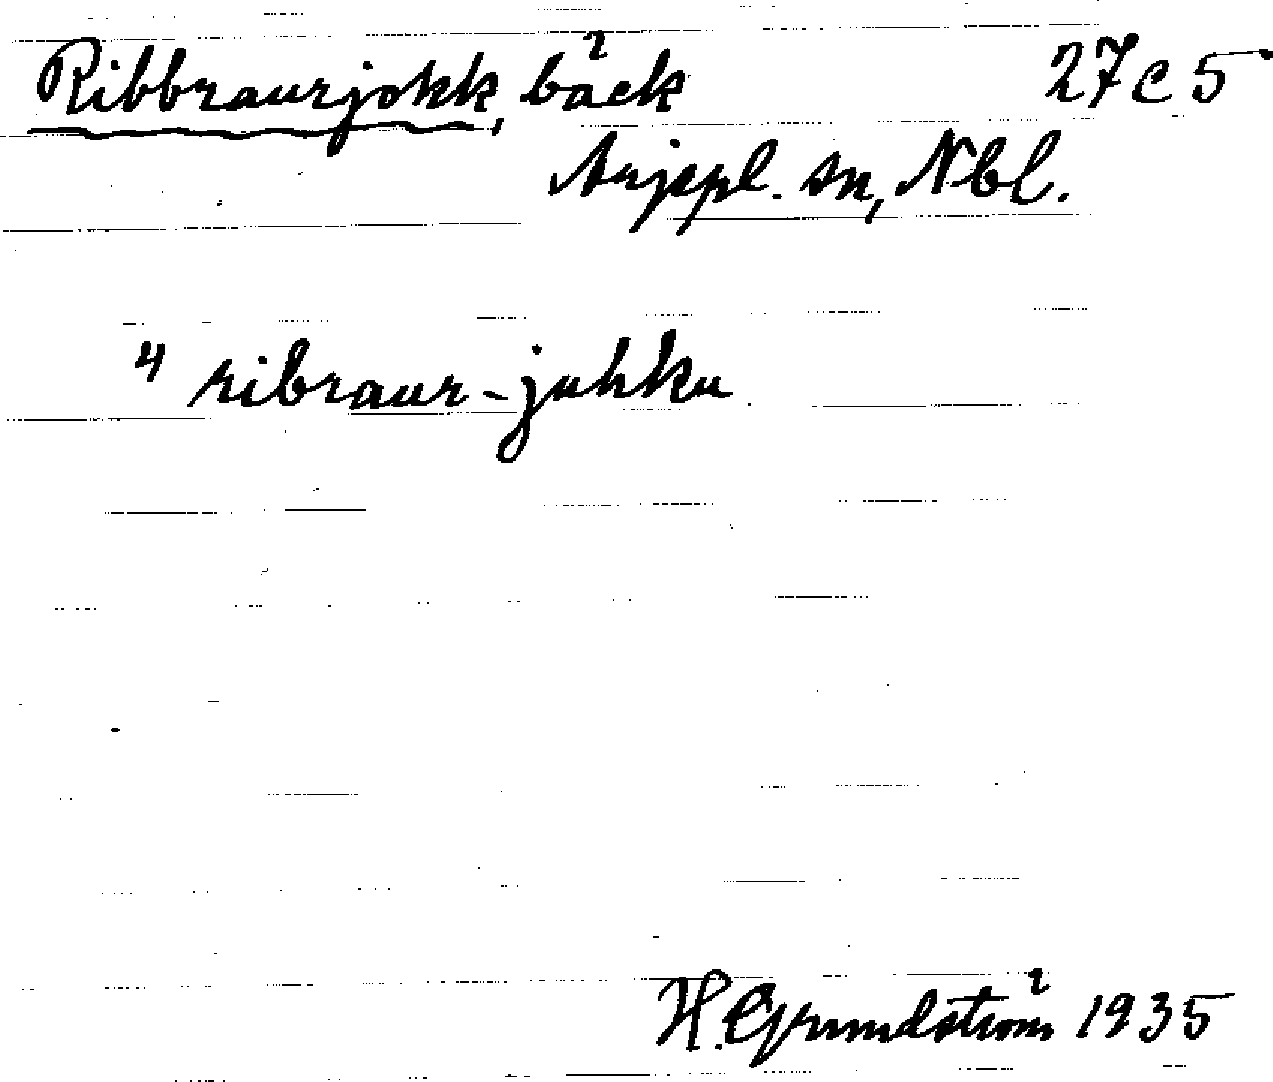 Ribbraurjokk, bäck 27c5
Arjepl. sn, Nbl.
" ribraur-juhku
H. Grundström 1935